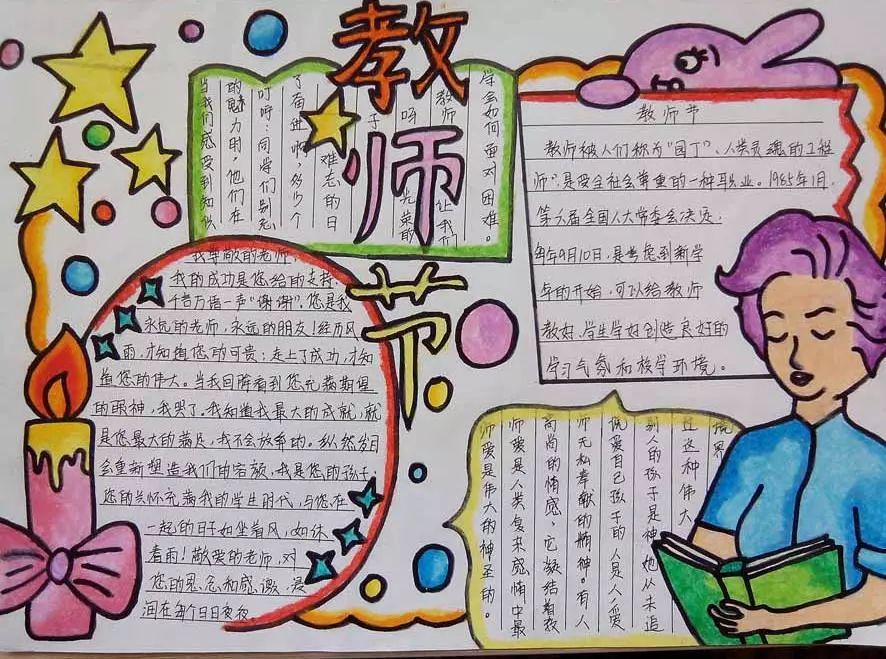 教师节
学会如何面对困难。
让我们
教师
光荣的
呀
子
难忘的日
了奋进啊，多少个
叮咛：同学们别忘
的魅力时，他们在
当我们感受到知识
教师节
教师被人们称为"园丁"、人类灵魂的工程
师"，是受全社会尊重的一种职业。1985年1月，
第六届全国人大常委会决定，
每年9月10日，是考虑到新学
年的开始，可以给教师
教好、学生学好创造良好的
学习气氛和校学环境。
我尊敬的老师
我的成功是您给的支持，
千言万语一声"谢谢"。您是我
永远的老师，永远的朋友！经历风
雨，才知道您的可贵；走上了成功，才知
道您的伟大。当我回
看到您充满期望
的眼神，我哭了。我知道我最大的成就，就
是您最大的满足，我不会放弃的。纵然岁月
会重新塑造我们的容颜，我是您的孩子；
您的关怀充满我的学生时代，与您在
一起的日子如坐春风，如沐
春雨！敬爱的老师，对
您的思念和感激，浸
润在每个日日夜夜
流界
过这种伟大
别人的孩子是神 她从未追
仅爱自己孩子的 人是人 爱
师无私奉献的精神。有人
高尚的情感，它凝结着教
师爱是人类复来感情中最
师爱是伟大的神圣的。